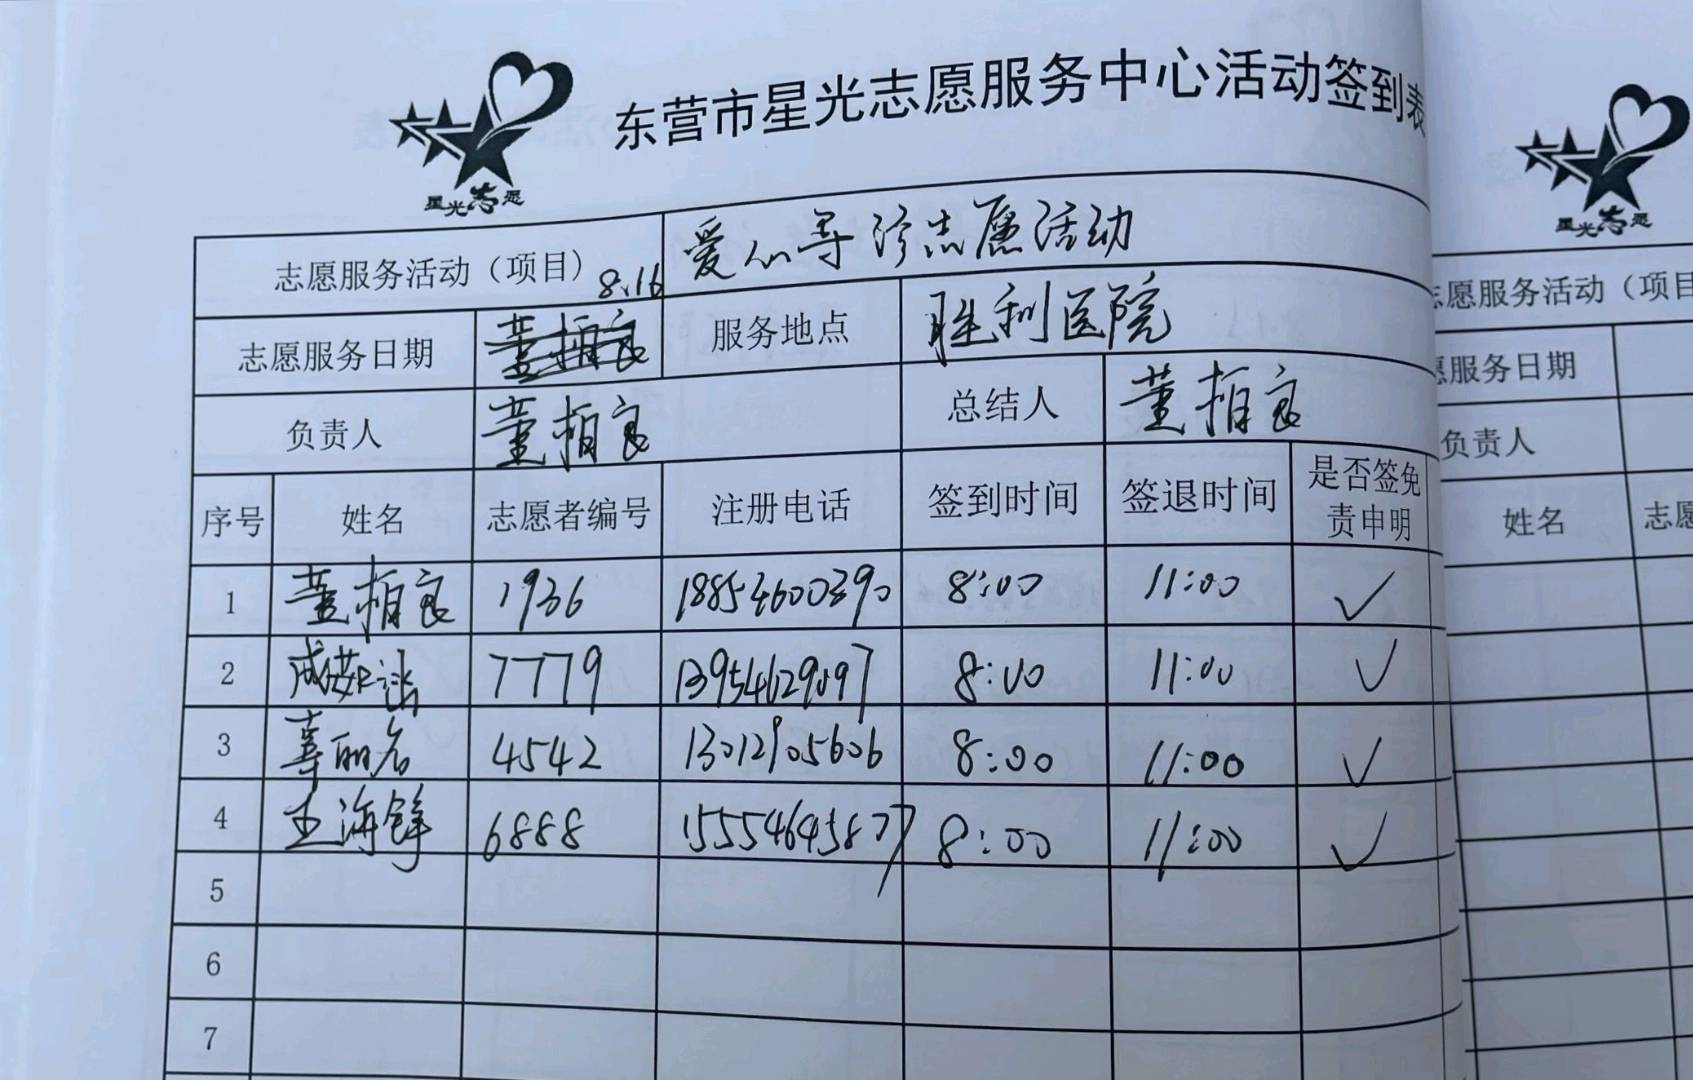 东营市星光志愿服务中心活动签到表
星光志愿
志愿服务活动（项目） 8.16 爱心导诊志愿活动
志愿服务日期 董梢良 服务地点 胜利医院
负责人 董梢良 总结人 董梢良
序号 姓名 志愿者编号 注册电话 签到时间 签退时间 是否签免责申明
1 董梢良 1936 18854600390 8:00 11:00 ✓
2 7779 13954629097 8:00 11:00 ✓
3 辜丽名 4542 13012905606 8:00 11:00 ✓
4 王海锋 6888 15554645877 8:00 11:00 ✓
5
6
7
星光志愿
志愿服务活动（项目
愿服务日期
负责人
姓名 志愿